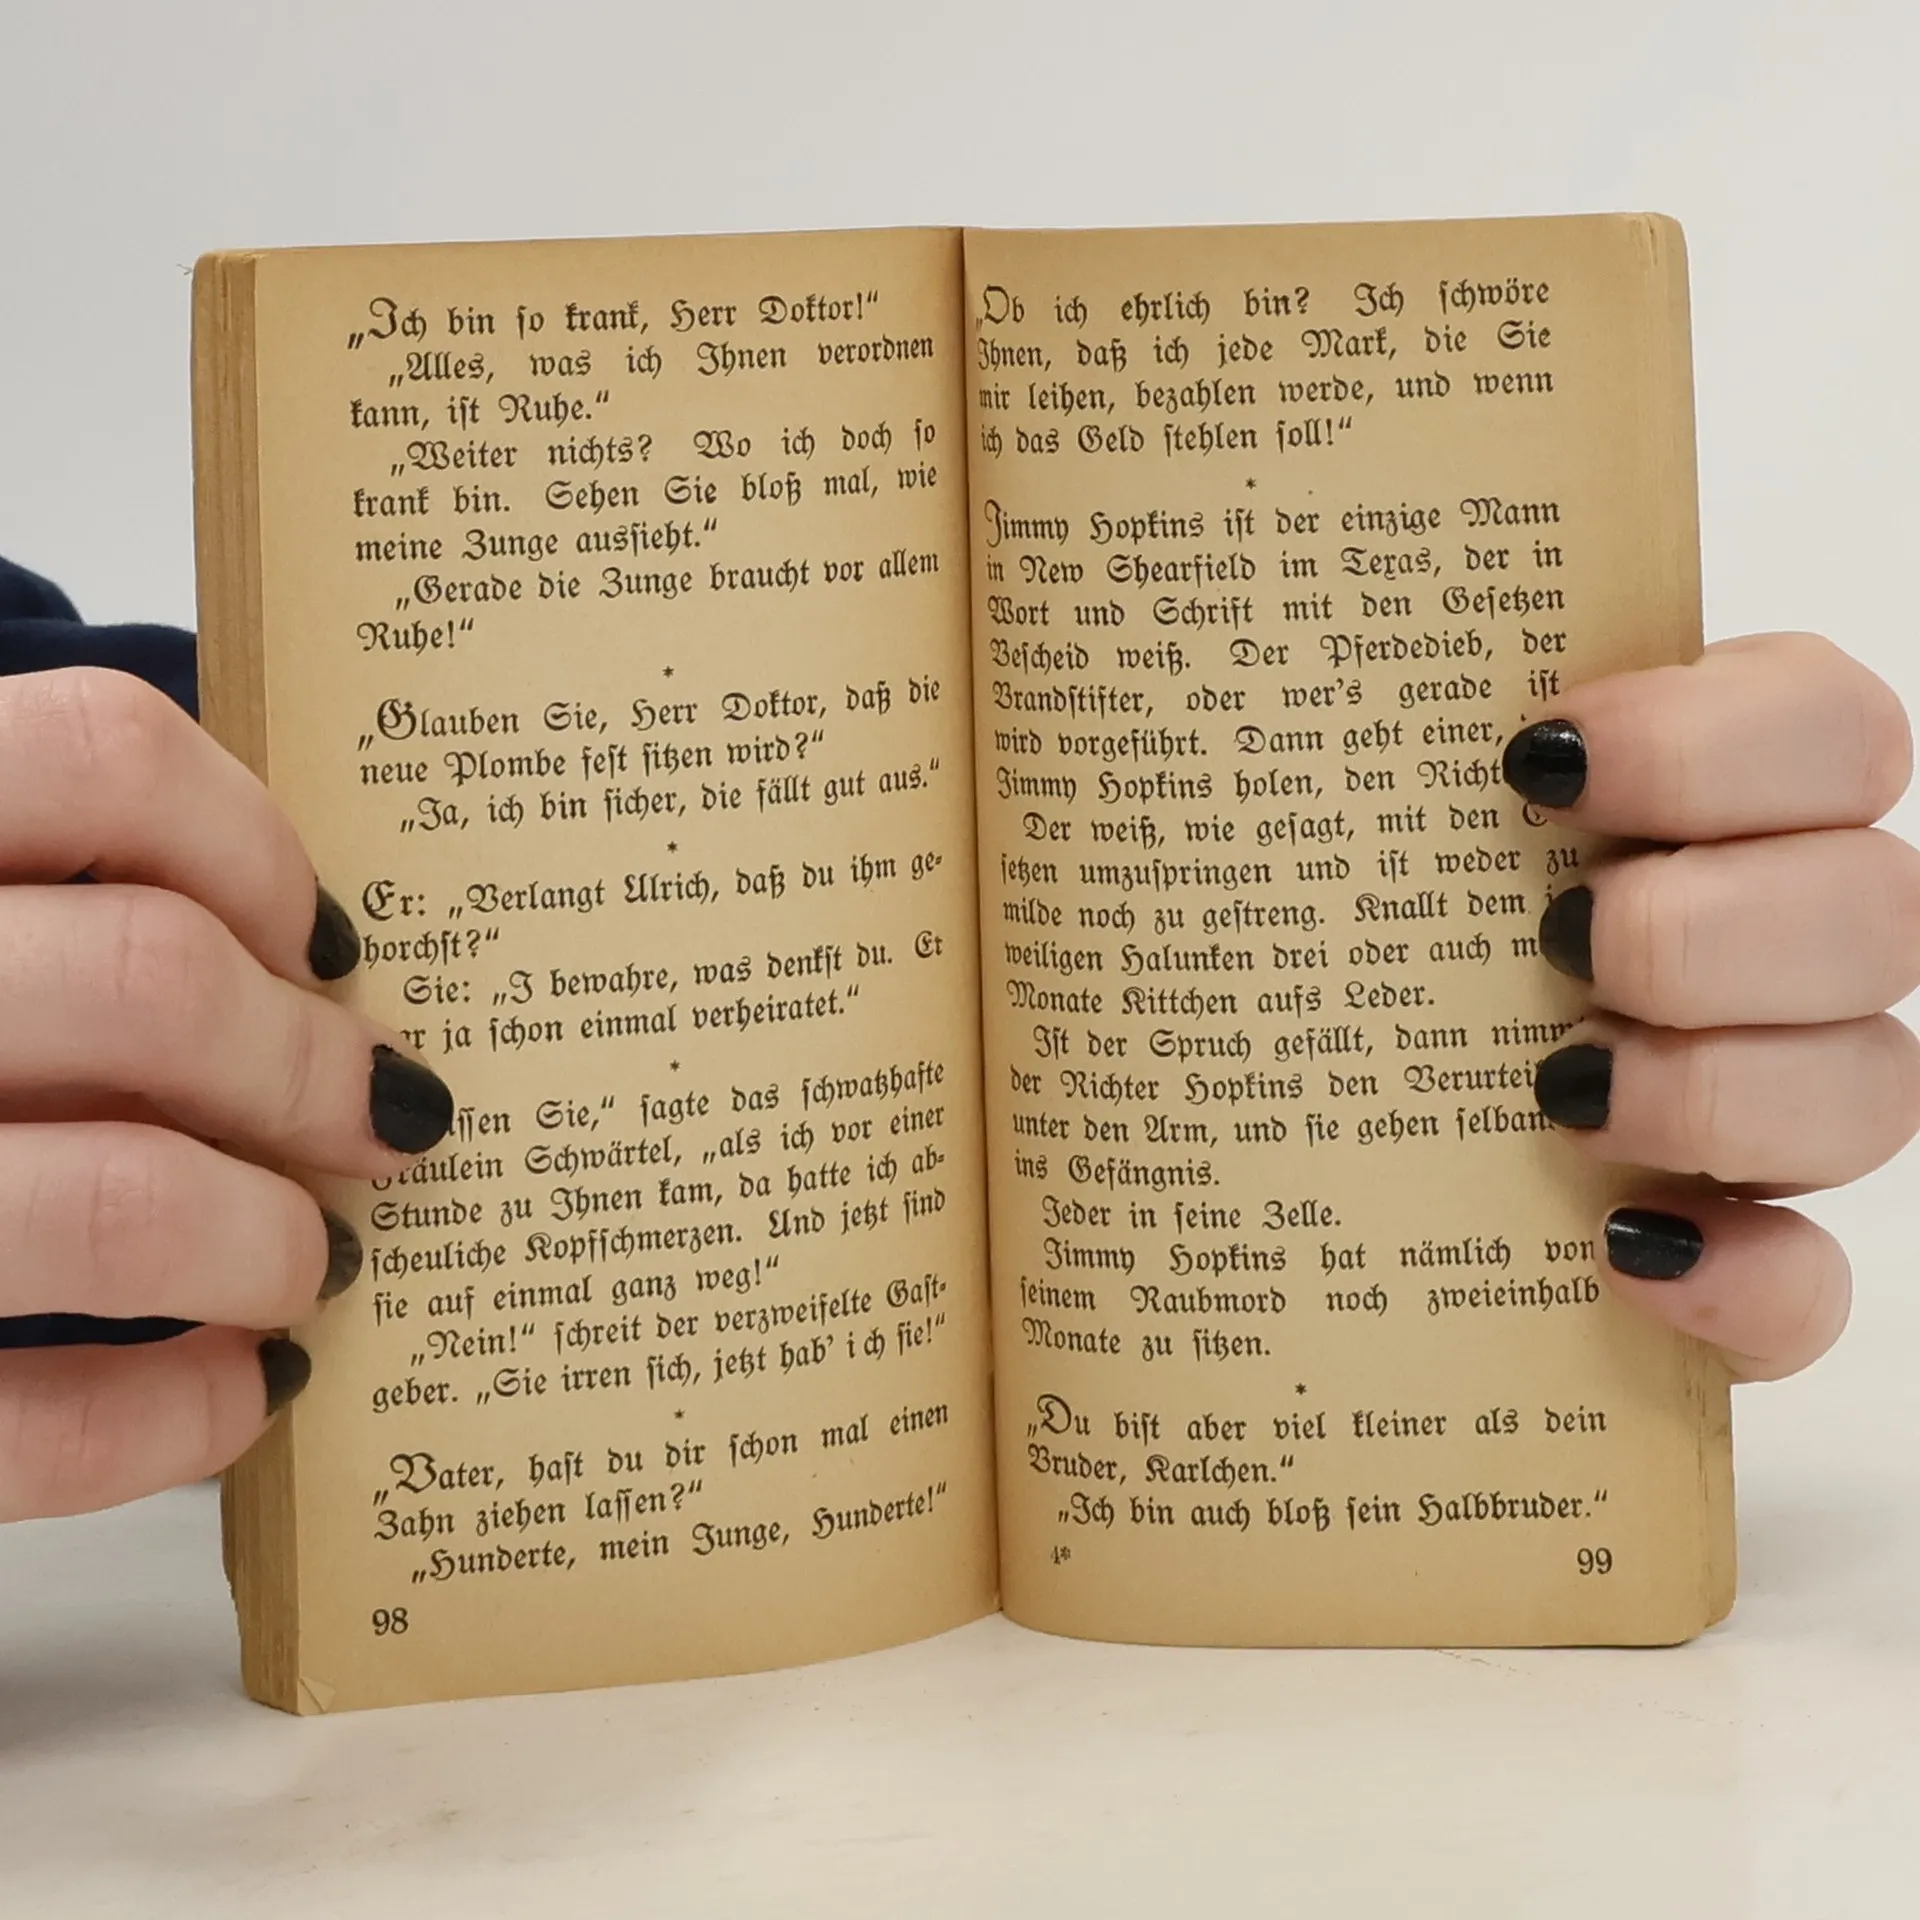 „Ich bin so krank, Herr Doktor!“
„Alles, was ich Ihnen verordnen
kann, ist Ruhe.“
„Weiter nichts? Wo ich doch so
krank bin. Sehen Sie bloß mal, wie
meine Zunge aussieht.“
„Gerade die Zunge braucht vor allem
Ruhe!“
*
„Glauben Sie, Herr Doktor, daß die
neue Plombe fest sitzen wird?“
„Ja, ich bin sicher, die fällt gut aus.“
*
Er: „Verlangt Ulrich, daß du ihm ge-
horchst?“
Sie: „I bewahre, was denkst du. Er
ja schon einmal verheiratet.“
*
Sie,“ sagte das schwatzhafte
Fräulein Schwärtel, „als ich vor einer
Stunde zu Ihnen kam, da hatte ich ab-
scheuliche Kopfschmerzen. Und jetzt sind
sie auf einmal ganz weg!“
„Nein!“ schreit der verzweifelte Gast-
geber. „Sie irren sich, jetzt hab’ ich sie!“
*
„Vater, hast du dir schon mal einen
Zahn ziehen lassen?“
„Hunderte, mein Junge, Hunderte!“
98
„Ob ich ehrlich bin? Ich schwöre
Ihnen, daß ich jede Mark, die Sie
mir leihen, bezahlen werde, und wenn
ich das Geld stehlen soll!“
*
Jimmy Hopkins ist der einzige Mann
in New Shearfield im Texas, der in
Wort und Schrift mit den Gesetzen
Bescheid weiß. Der Pferdedieb, der
Brandstifter, oder wer’s gerade ist
wird vorgeführt. Dann geht einer,
Jimmy Hopkins holen, den
Der weiß, wie gesagt, mit den
setzen umzuspringen und ist weder zu
milde noch zu gestreng. Knallt dem
weiligen Halunken drei oder auch
Monate Kittchen aufs Leder.
Ist der Spruch gefällt, dann nimmt
der Richter Hopkins den
unter den Arm, und sie gehen
ins Gefängnis.
Jeder in seine Zelle.
Jimmy Hopkins hat nämlich von
seinem Raubmord noch zweieinhalb
Monate zu sitzen.
*
„Du bist aber viel kleiner als dein
Bruder, Karlchen.“
„Ich bin auch bloß sein Halbbruder.“
4*
99